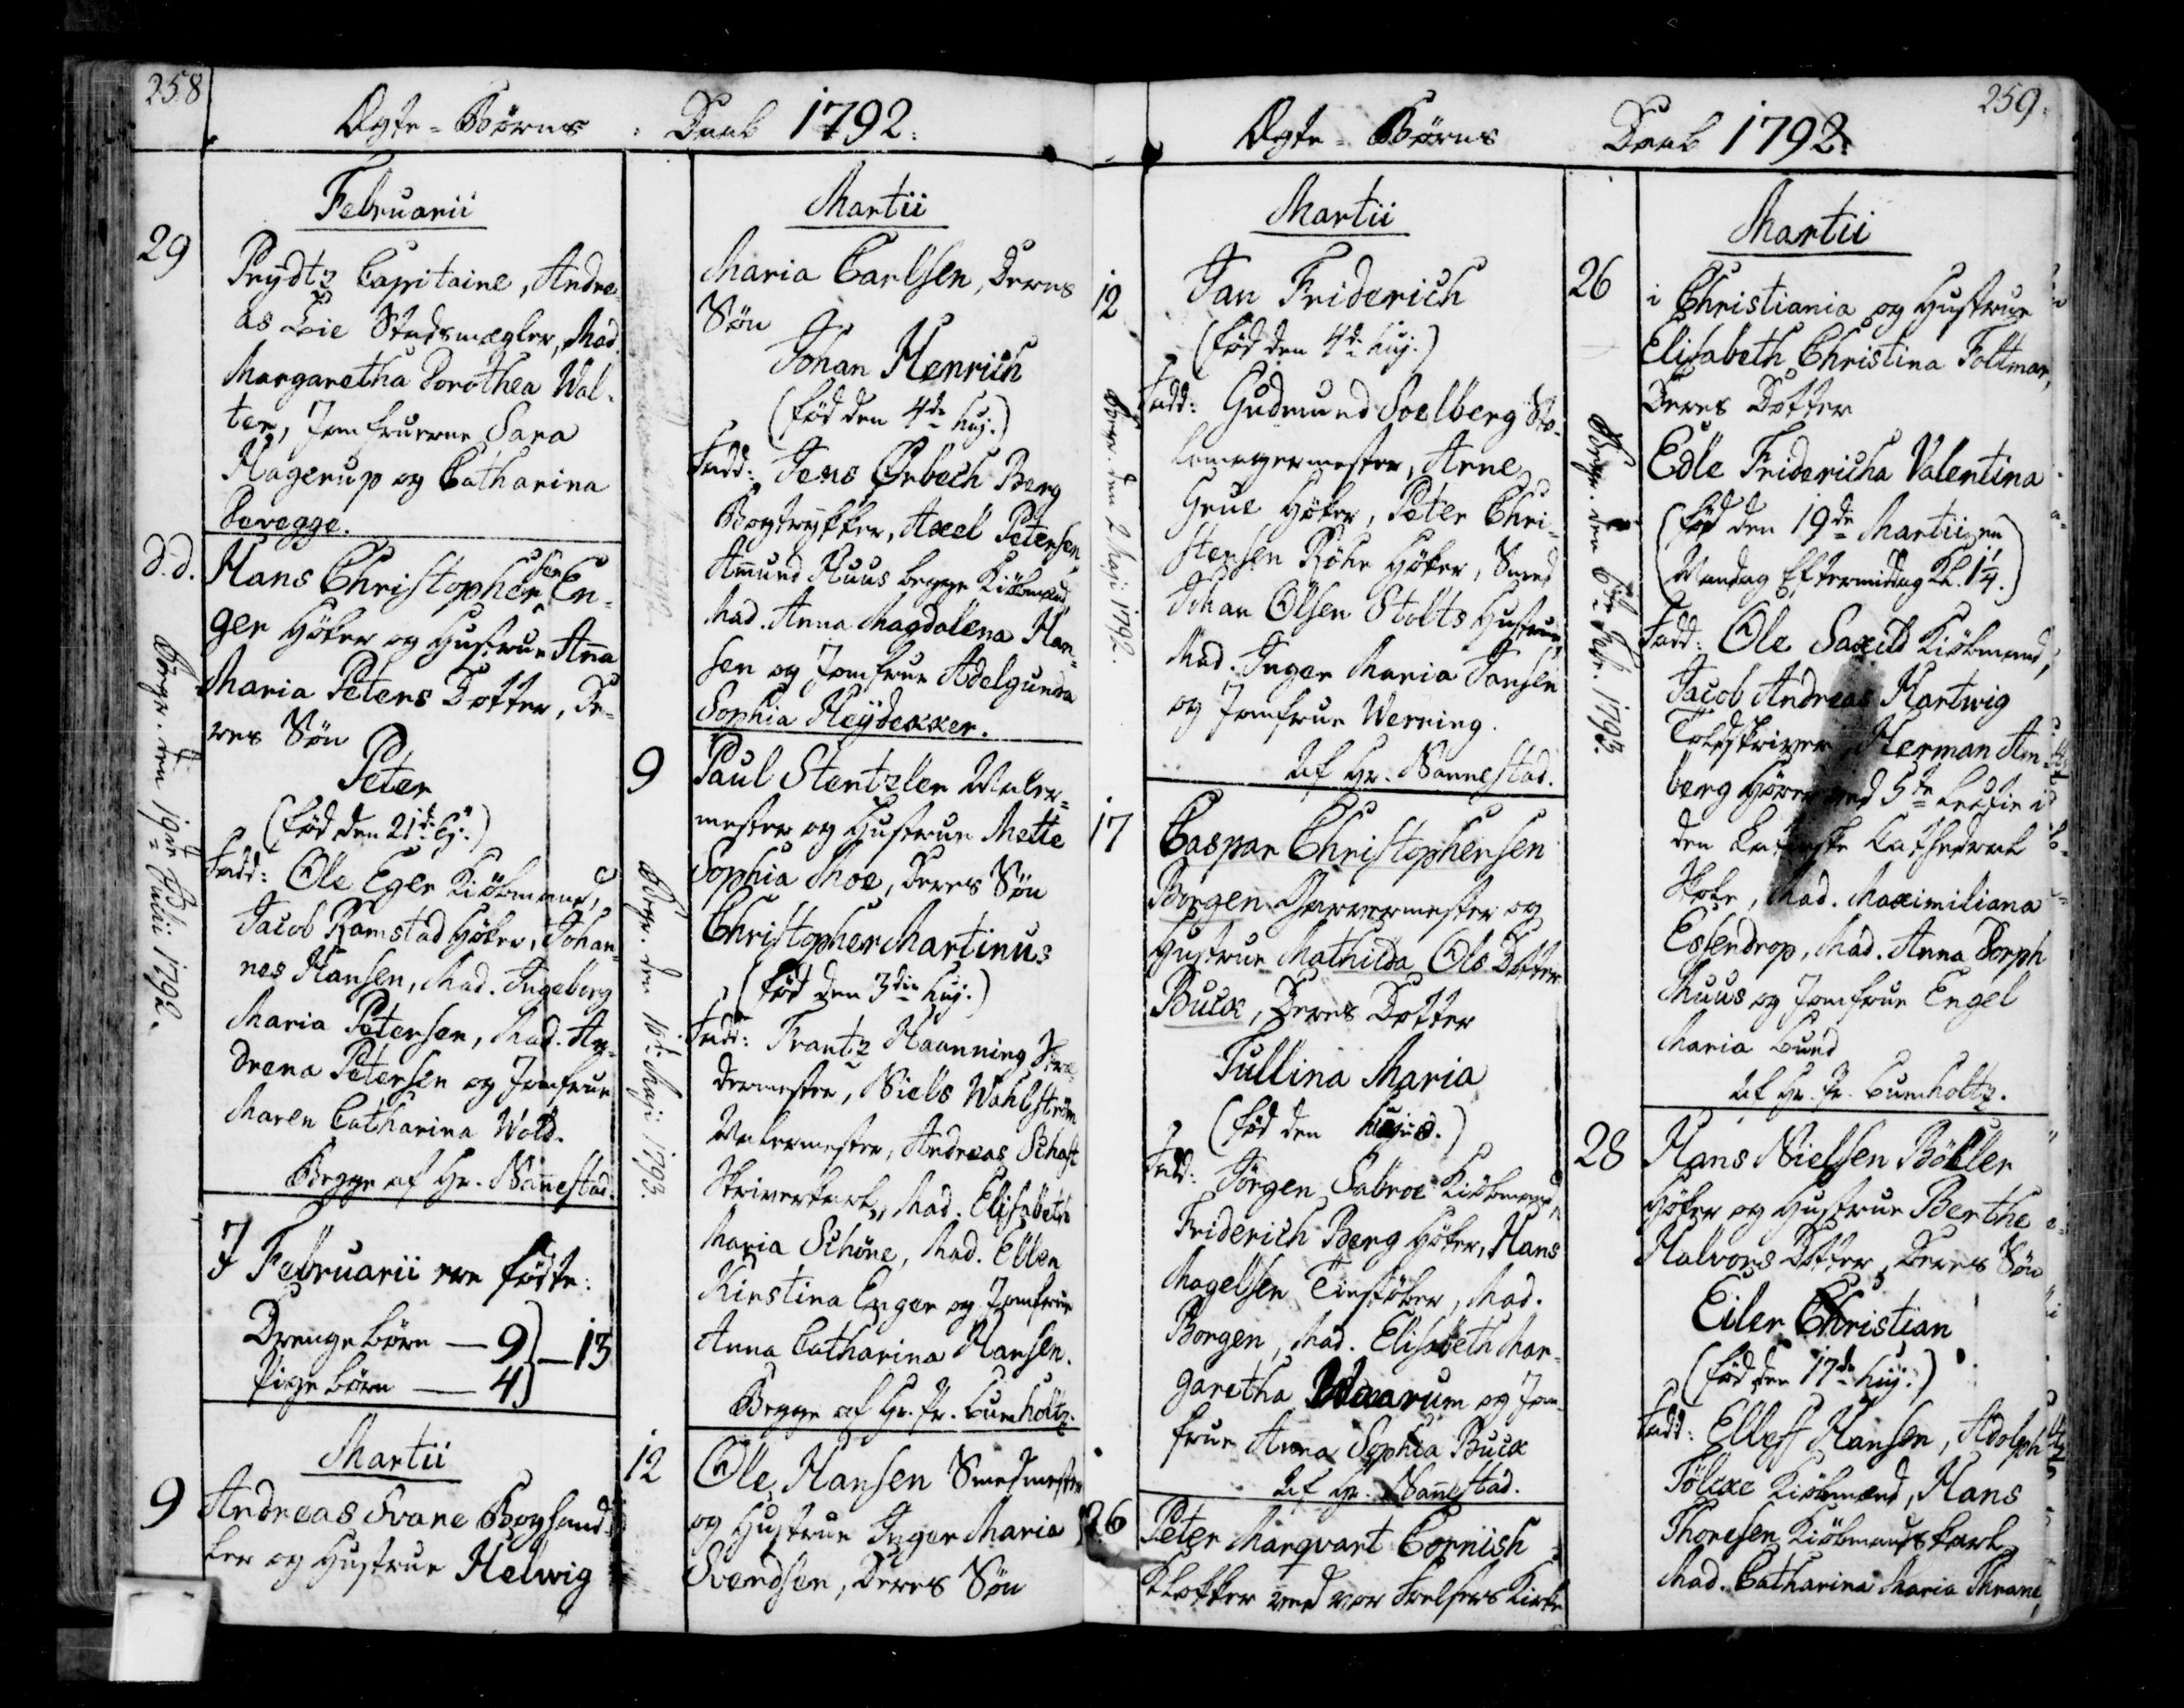 258
Ægte-Børns Daab 1792.
Februarii
29
Prydtz Capitaine, Andre-
as Lie Stadsmægler, Mad.
Margaretha Dorothea Wal-
ter, Jomfruerne Sara
Hagerup og Catharina
Devegge.
d.d.
Hans Christophersen En-
ger Höker og Hustrue Anna
Maria Peters Dotter, De-
res Søn
Peter
(fød den 21de hj.)
Fadd: Ole Eger Kiöbmand,
Jacob Ramstad Höker, Johan-
nes Hansen, Mad. Ingeborg
Maria Petersen, Mad. An-
drena Petersen og Jomfrue
Maren Catharina Wold.
Begge af Hr. Nannestad.
Begr. den 19de Junii 1792.
I Februarii ere fødte:
Drengebörn — 9
Pigebörn — 4
— 13
Martii
9
Andreas Svane Boghand-
ler og Hustrue Helwig
Martii
Maria Carlsen, Deres
Søn
Johan Henrich
(fød den 4de huj.)
Fadd: Jens Ørbech Berg
Bogtrykker, Axel Petersen,
Amund Ruus begge Kiöbmænd,
Mad. Anna Magdalena Han-
sen og Jomfrue Adelgunda
Sophia Heydekker.
9
Paul Stentzler Maler-
mester og Hustrue Mette
Sophia Moe, Deres Søn
Christopher Martinus
(fød den 3die huj.)
Fadd: Frantz Haanning Skræ-
dermester, Niels Wahlstrøm
Malermester, Andreas Schaft
Skriverkarl, Mad. Elisabeth
Maria Schöne, Mad. Ellen
Kirstina Enger og Jomfrue
Anna Catharina Hansen.
Begge af Hr. Pr. Lumholtz.
Begr. den 16 Maji 1793.
12
Ole Hansen Smedmester
og Hustrue Inger Maria
Svendsen, Deres Søn
259.
Ægte-Børns Daab 1792.
Martii
12
Jan Friderich
(fød den 4de huj.)
Fadd: Gudmund Soelberg Sto-
lemagermester, Arne
Grue Höker, Peter Chri-
stensen Röhr Höker, Smed
Johan Olsen Stolts Hustrue,
Mad. Inger Maria Jansen
og Jomfrue Werning.
Af Hr. Nannestad.
Begr. den 2 Maji 1792.
17
Caspar Christophersen
Borgen Garvermester og
Hustrue Mathilda Ols Dotter
Buck, Deres Dotter
Tullina Maria
(fød den hujus.)
Fadd: Jörgen Sabroe Kiöbmand,
Friderich Berg Höker, Hans
Magelssen Tinstöber, Mad.
Borgen, Mad. Elisabeth Mar-
garetha Waarum og Jom-
frue Anna Sophia Buck
Af Hr. Nannestad.
26
Peter Marqvart Cornish
Klokker ved vor Frelsers Kirke
Martii
26
i Christiania og Hustrue
Elisabeth Christina Foltmar,
Deres Dotter
Edle Fridericha Valentina
(fød den 19de Martii, en
Mandag Eftermiddag Kl. 1¼.)
Fadd: Ole Saxild Kiöbmand,
Jacob Andreas Hartwig
Toldskriver, Herman Am-
berg Hörer ved 5te Lectie i
den Latinske Cathedral
Skole, Mad. Maximiliana
Essendrop, Mad. Anna Dorph
Muus og Jomfrue Engel
Maria Lund
Af Hr. Pr. Lumholtz.
Begr. den 6te 1793.
28
Hans Nielsen Böller
Höker og Hustrue Berthe
Halvors Dotter, Deres Søn
Eiler Christian
(fød den 17de huj.)
Fadd: Ellef Hansen, Adolph
Kiöbmænd, Hans
Thoresen Kiöbmandskarl,
Mad. Catharina Maria Thrane,